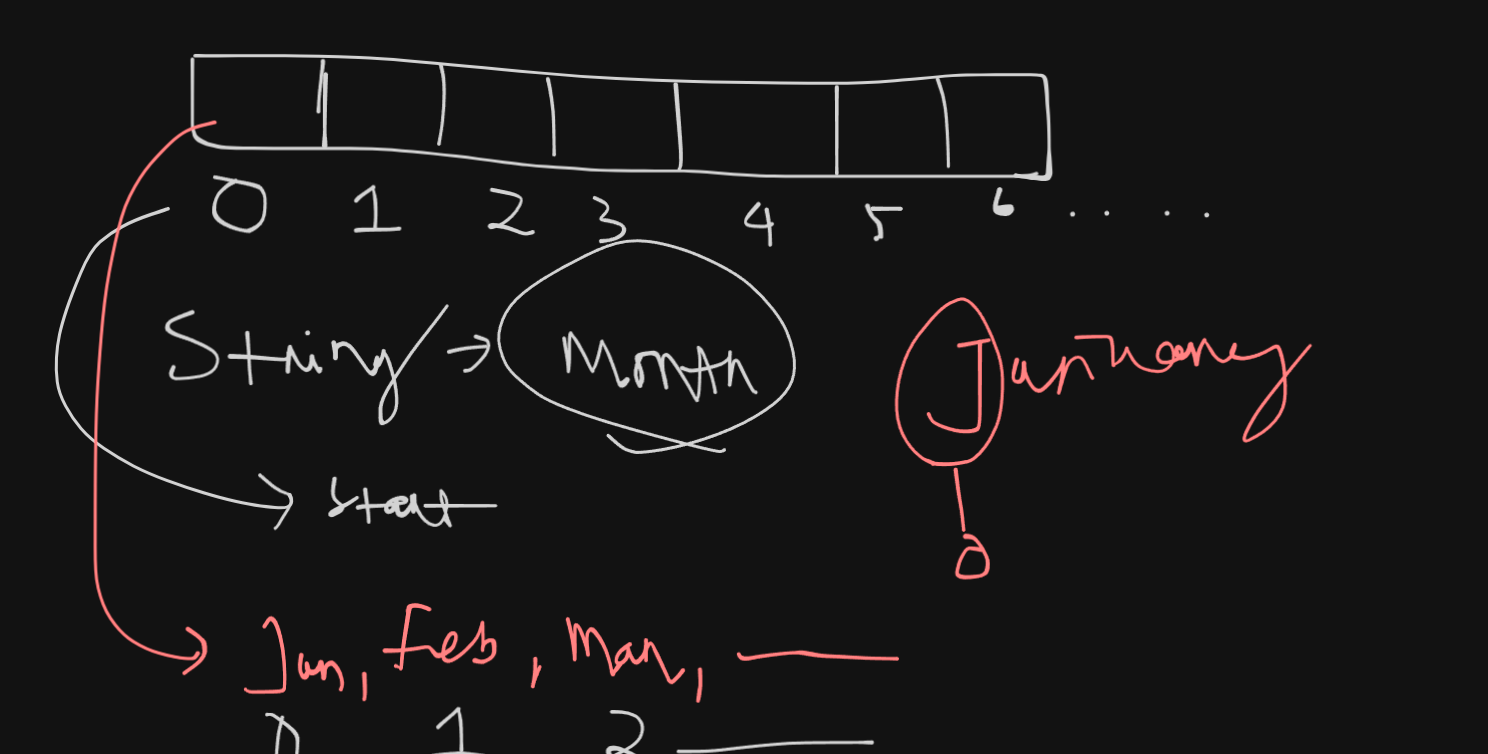 0 1 2 3 4 5 6 . . . .
String → Month
January
→ Start
0
→ Jan, Feb, Mar, —
0 1 2 —